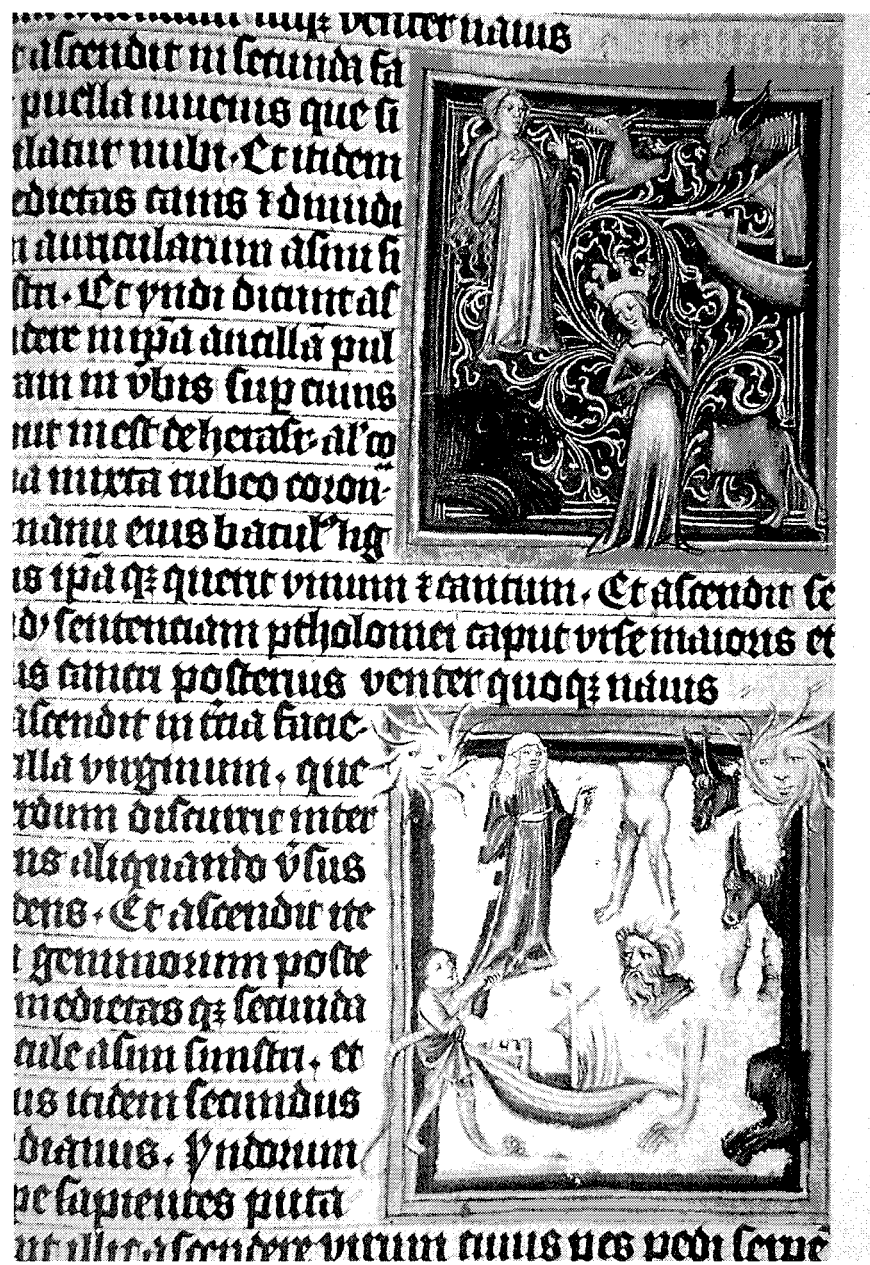 venter nauis
ascendit in secunda fa
puella iuuenis que si
latur nubi. Et itidem
edietas canis ⁊ dimidi
auricularum asini si
stri. Et yndi dicunt as
dere in ip̄a ancillā pul
am in v̄bis sup cuius
est de herasr al'co
iuxta rubeo coron
manu eius bacul' lig
is ip̄a qꝫ querit vinum ⁊ cantum. Et ascendit se
sententiam ptholomei caput vrse maioris et
is cancri posterius venter quoqꝫ nauis
ascendit in t̄cia facie
lla virginum. que
rdum discurrit inter
ns aliquando v̄sus
dens. Et ascendit ite
geminorum poste
medietas qꝫ secunda
cule asini sinistri. et
us itidem secundus
dianus. Yndorum
pe sapientes puta
nt illic ascendere virum cuius pes pedi serpē